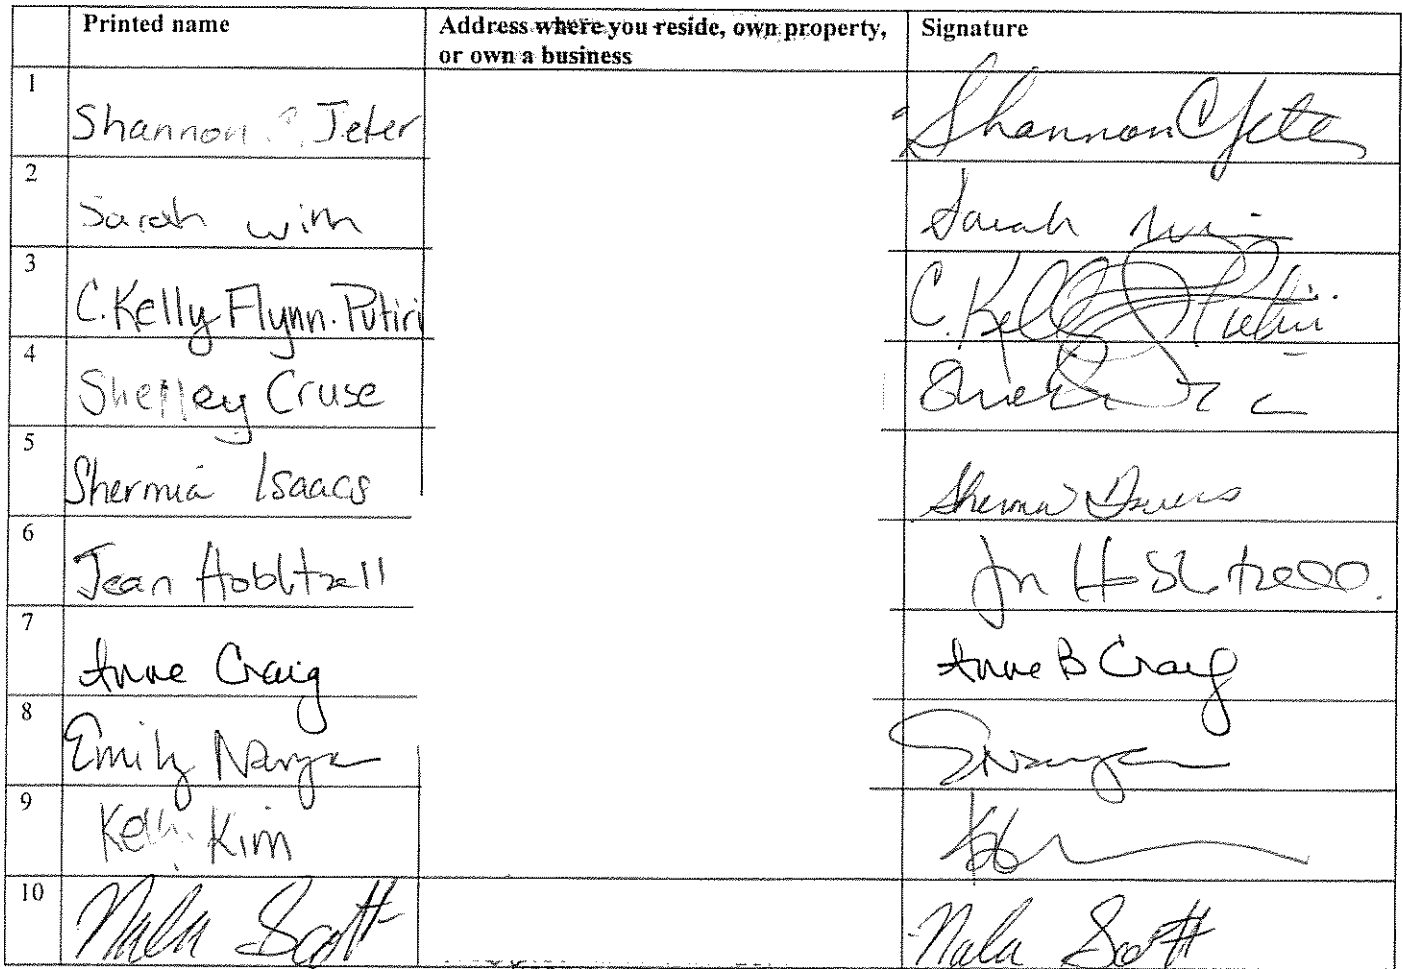 Printed name Address where you reside, own property, Signature
or own a business
1 Shannon C. Jeter Shannon C Jeter
2 Sarah Sarah
3 C. Kelly Flynn-Putiri C. Kelly Putiri
4 Shelley Cruse
5 Shermia Isaacs Shermia Isaacs
6 Jean Hoblitzell Hoblitzell
7 Anne Craig Anne B Craig
8 Emily
9 Kim
10 Nala Scott Nala Scott